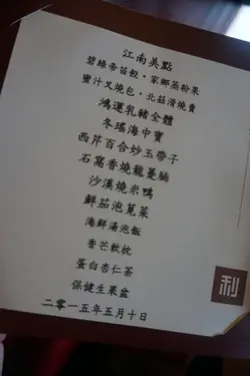 江南美點
碧綠帶苗餃·家鄉蒸粉果
蜜汁叉燒包·北菇滑燒賣
鴻運乳豬全體
冬瑤海中寶
西芹百合炒玉帶子
石窩香燒龍躉腩
沙溪燒米鴨
鮮菇泡莧菜
海鮮湯泡飯
香芒軟枕
蛋白杏仁茶
保健生果盆
二零一五年五月十日
利